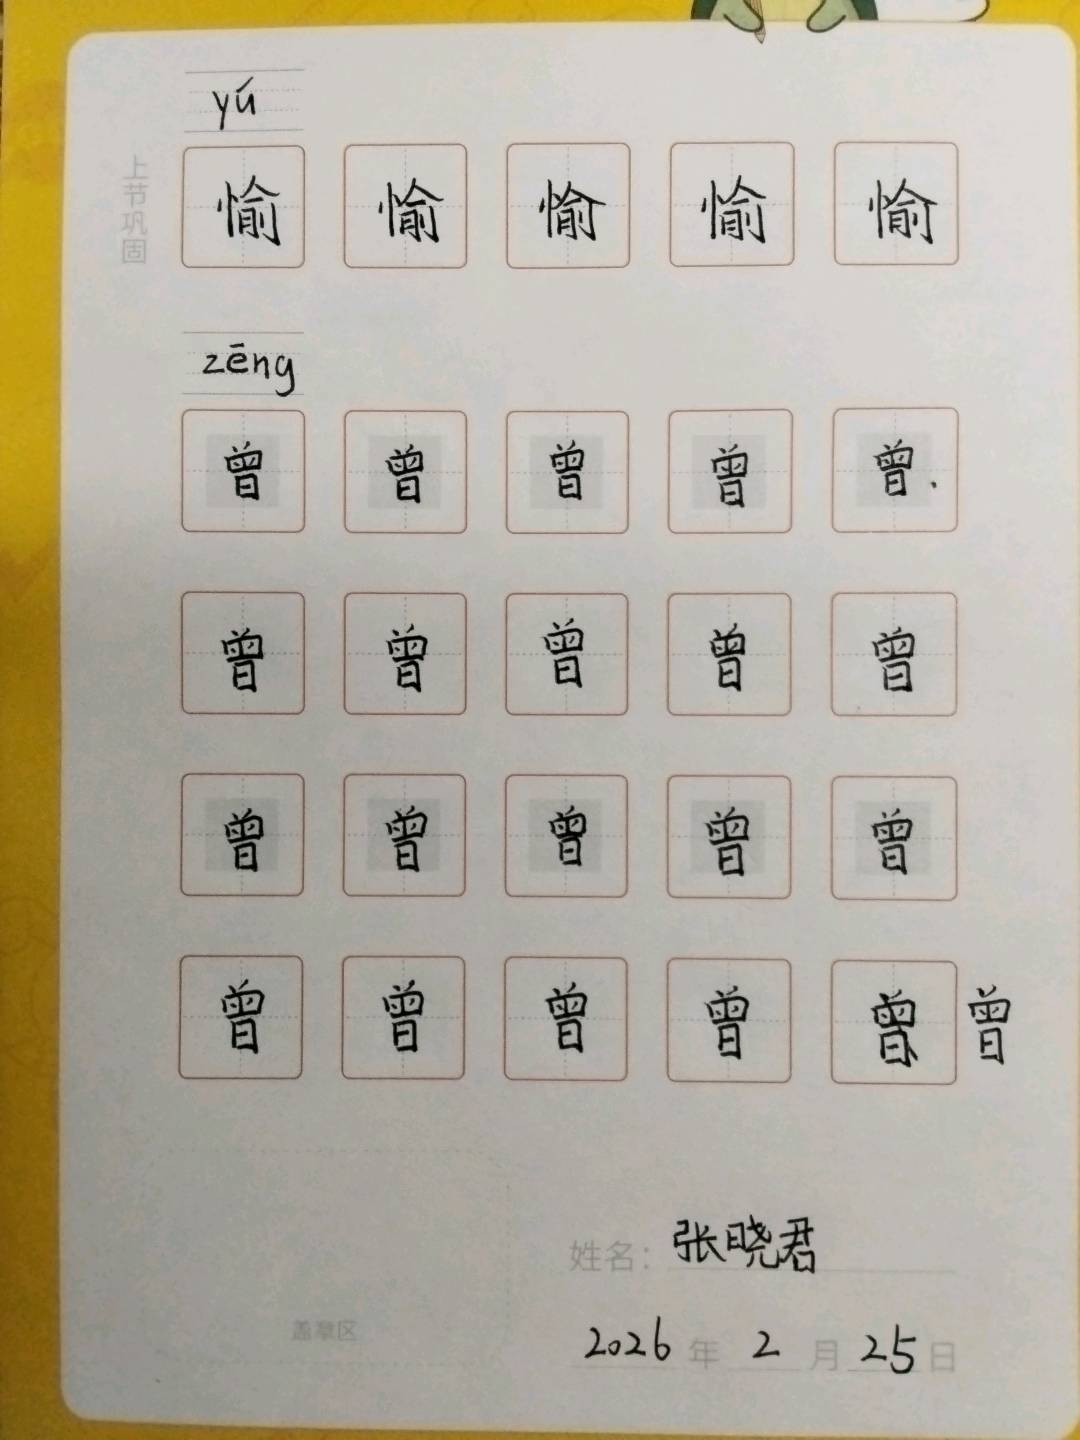 yú
上节巩固
愉 愉 愉 愉 愉
zēng
曾 曾 曾 曾 曾
曾 曾 曾 曾 曾
曾 曾 曾 曾 曾
曾 曾 曾 曾 曾 曾
姓名: 张晓君
盖章区
2026 年 2 月 25 日